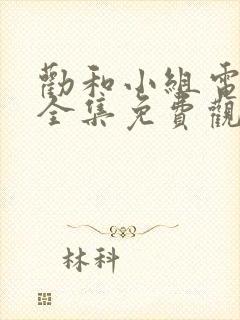 勸和小組電
全集免費觀
林科